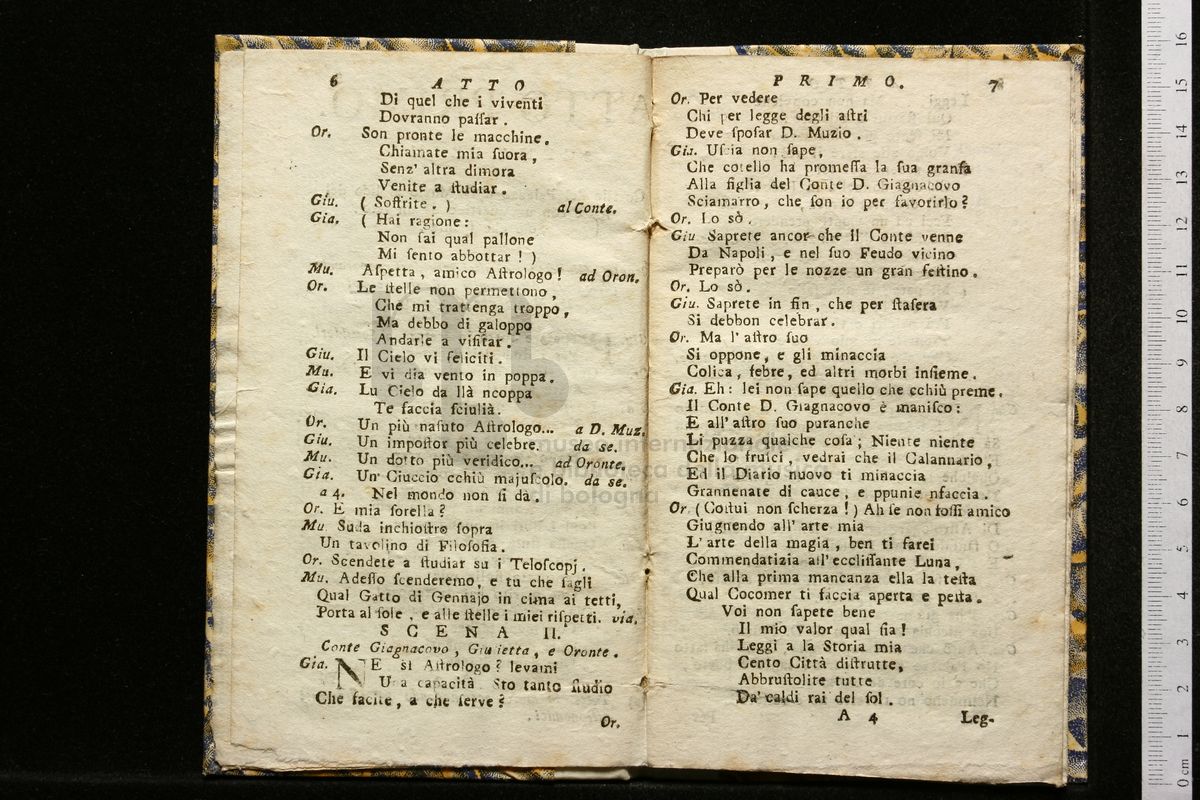 6 ATTO
Di quel che i viventi
Dovranno paſſar.
Or. Son pronte le macchine.
Chiamate mia ſuora,
Senz' altra dimora
Venite a ſtudiar.
Giu. (Soffrite.) al Conte.
Gia. (Hai ragione:
Non ſai qual pallone
Mi ſento abbottar!)
Mu. Aſpetta, amico Aſtrologo! ad Oron.
Or. Le ſtelle non permettono,
Che mi trattenga troppo,
Ma debbo di galoppo
Andarle a viſitar.
Giu. Il Cielo vi feliciti.
Mu. E vi dia vento in poppa.
Gia. Lu Cielo da llà ncoppa
Te faccia ſciulià.
Or. Un più naſuto Aſtrologo... a D. Muz.
Giu. Un impoſtor più celebre. da se.
Mu. Un dotto più veridico... ad Oronte.
Gia. Un' Ciuccio cchiù majuſcolo. da se.
a 4. Nel mondo non ſi dà.
Or. E mia ſorella?
Mu. Suda inchioſtro ſopra
Un tavolino di Filoſofia.
Or. Scendete a ſtudiar su i Teloſcopj.
Mu. Adeſſo ſcenderemo, e tu che ſagli
Qual Gatto di Gennajo in cima ai tetti,
Porta al ſole, e alle ſtelle i miei riſpetti. via.
SCENA II.
Conte Giagnacovo, Giulietta, e Oronte.
Gia. NE sì Aſtrologo? levami
Una capacità. Sto tanto ſtudio
Che facite, a che ſerve?
Or.
PRIMO. 7
Or. Per vedere
Chi per legge degli aſtri
Deve ſpoſar D. Muzio.
Gia. Uſcia non ſape,
Che coteſto ha promeſſa la ſua granſa
Alla figlia del Conte D. Giagnacovo
Sciamarro, che ſon io per favorirlo?
Or. Lo sò.
Giu. Saprete ancor che il Conte venne
Da Napoli, e nel ſuo Feudo vicino
Preparò per le nozze un gran feſtino.
Or. Lo sò.
Giu. Saprete in fin, che per ſtaſera
Si debbon celebrar.
Or. Ma l' aſtro ſuo
Si oppone, e gli minaccia
Colica, febre, ed altri morbi inſieme.
Gia. Eh: lei non ſape quello che cchiù preme.
Il Conte D. Giagnacovo è maniſco:
E all' aſtro ſuo puranche
Li puzza qualche coſa; Niente niente
Che lo fruſci, vedrai che il Calannario,
Ed il Diario nuovo ti minaccia
Grannenate di cauce, e ppunie nfaccia.
Or. (Coſtui non ſcherza!) Ah ſe non foſſi amico
Giugnendo all' arte mia
L' arte della magia, ben ti farei
Commendatizia all' eccliſſante Luna,
Che alla prima mancanza ella la teſta
Qual Cocomer ti faccia aperta e peſta.
Voi non ſapete bene
Il mio valor qual ſia!
Leggi a la Storia mia
Cento Città diſtrutte,
Abbruſtolite tutte
Da' caldi rai del ſol.
A 4 Leg-
museo internazionale
e biblioteca della musica
di bologna
16
15
14
13
12
11
10
9
8
7
6
5
4
3
2
1
0 cm